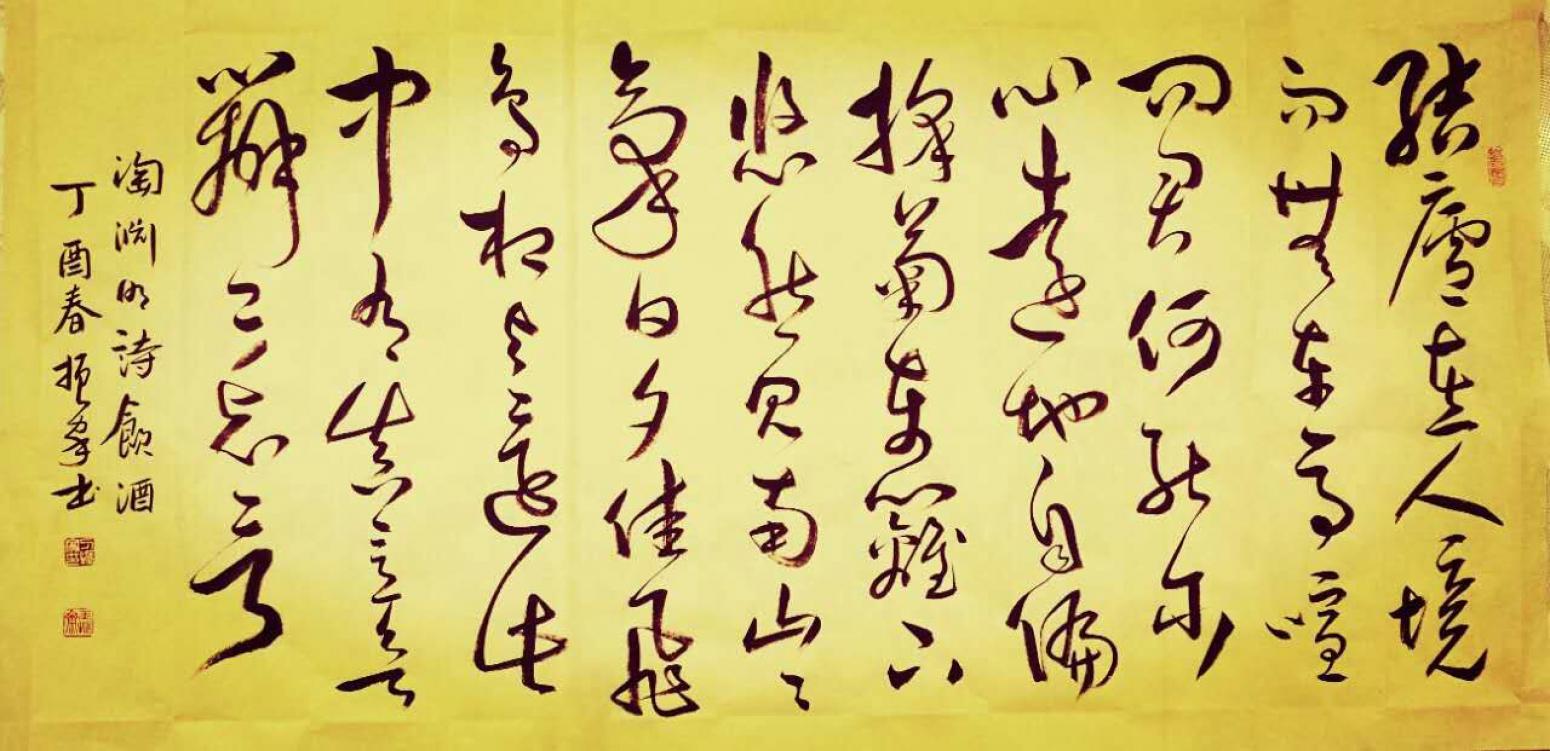 結廬在人境
而無車馬喧
问君何能尔
心遠地自偏
採菊東籬下
悠然見南山々
氣日夕佳飛
鳥相与還此
中有真意欲
辨已忘言
淘渊明詩飲酒
丁酉春振书